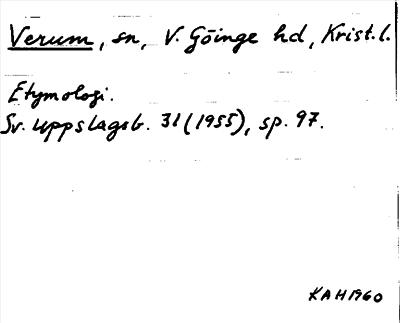 Verum, sn, V. Göinge hd, Krist. l.
Etymologi.
Sv. uppslagsb. 31 (1955), sp. 97.
KAH1960